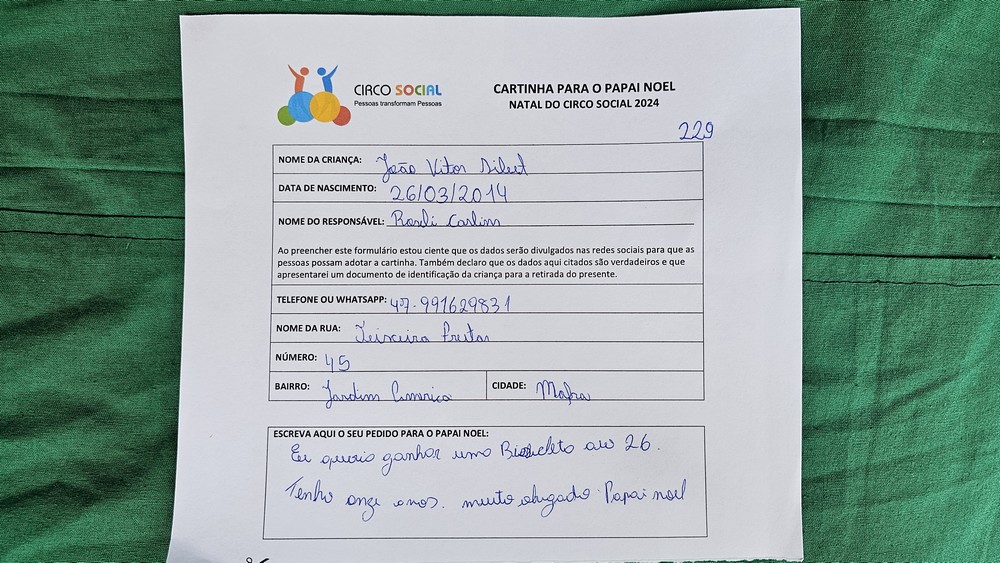 CIRCO SOCIAL
Pessoas transformam Pessoas
CARTINHA PARA O PAPAI NOEL
NATAL DO CIRCO SOCIAL 2024
229
NOME DA CRIANÇA: João Vitor
DATA DE NASCIMENTO: 26/03/2014
NOME DO RESPONSÁVEL: Roseli Carlim
Ao preencher este formulário estou ciente que os dados serão divulgados nas redes sociais para que as
pessoas possam adotar a cartinha. Também declaro que os dados aqui citados são verdadeiros e que
apresentarei um documento de identificação da criança para a retirada do presente.
TELEFONE OU WHATSAPP: 47-991629831
NOME DA RUA: Teixeira Freitas
NÚMERO: 45
BAIRRO: Jardim America CIDADE: Mafra
ESCREVA AQUI O SEU PEDIDO PARA O PAPAI NOEL:
Eu queria ganhar uma Bicicleta aro 26.
Tenho onze anos. muito obrigado Papai noel